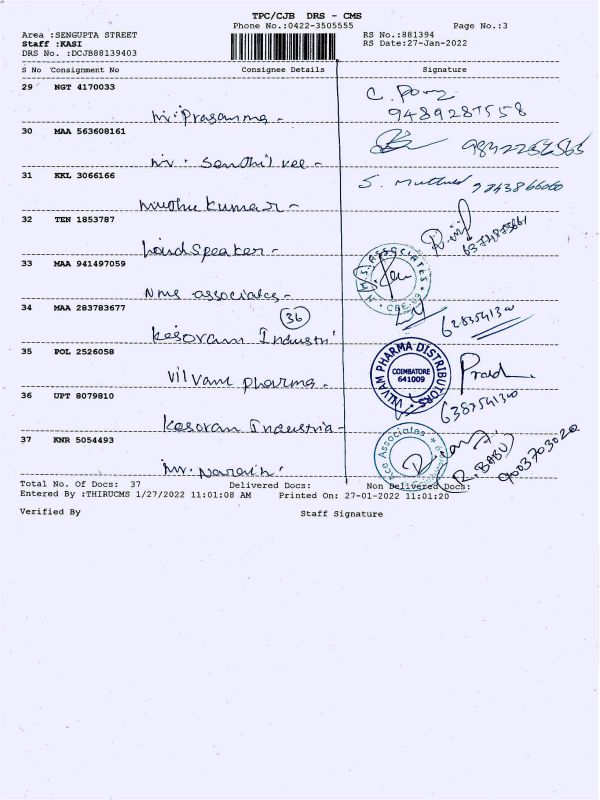 TPC/CJB DRS - CMS
Phone No.:0422-3505555 Page No.:3
Area :SENGUPTA STREET RS No.:881394
Staff :KASI RS Date:27-Jan-2022
DRS No. :DCJB88139403
S No Consignment No Consignee Details Signature
29 NGT 4170033
Mr. Prasanna -
C.
9489287558
30 MAA 563608161
Mr. Senthil vee -
31 KKL 3066166
Muthu kumar -
S.
9843866000
32 TEN 1853787
Loud Speaker -
33 MAA 941497059
Nms associates -
N.M.S. ASSOCIATES
CBE-09
34 MAA 283783677
36
Kesoram Industri
35 POL 2526058
Vilvam pharma -
VILVAM PHARMA DISTRIBUTORS
COIMBATORE
641009
36 UPT 8079810
Kesoram Industria -
37 KNR 5054493
Ace Associates
R. BABU
9003703020
Total No. Of Docs: 37 Delivered Docs: Non Delivered Docs:
Entered By :THIRUCMS 1/27/2022 11:01:08 AM Printed On: 27-01-2022 11:01:20
Verified By Staff Signature